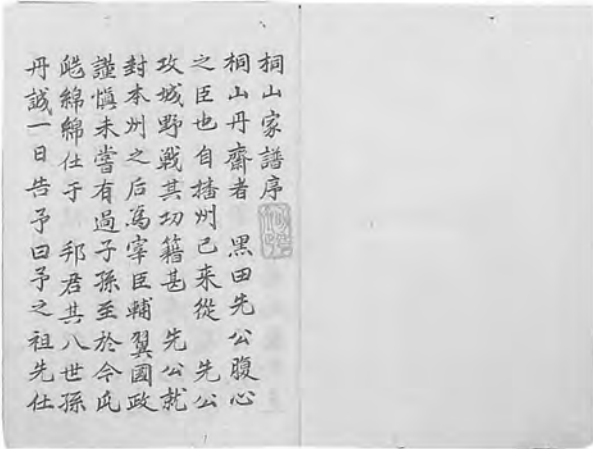 桐山家譜序
桐山丹齋者　黒田先公腹心
之臣也自播州已來從　先公
攻城野戦其功籍甚　先公就
封本州之后為宰臣輔翼國政
謹慎未嘗有過子孫至於今瓜
瓞綿綿仕于　邦君其八世孫
丹誠一日告予曰予之祖先仕